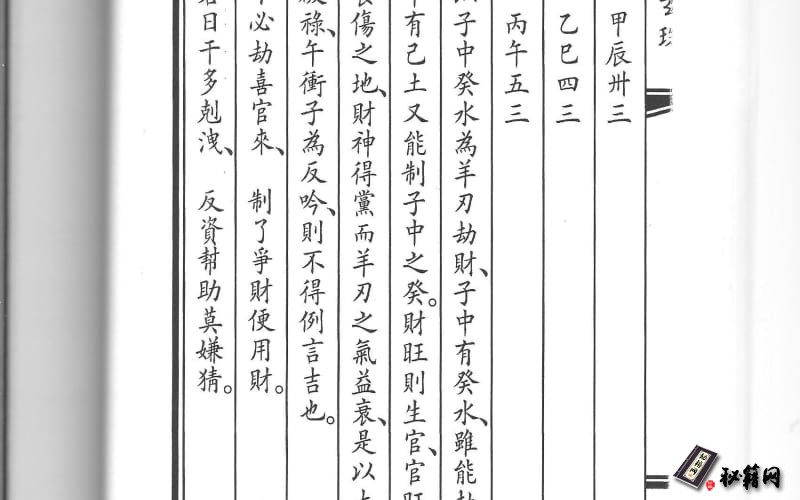 甲辰卅三
乙巳四三
丙午五三
子中癸水為羊刃劫財、子中有癸水、雖能劫
有己土又能制子中之癸。財旺則生官、官旺
傷之地、財神得黨而羊刃之氣益衰、是以
祿、午衝子為反吟、則不得例言吉也。
必劫喜官來、 制了爭財便用財。
日干多剋洩、 反資幫助莫嫌猜。
秘籍网